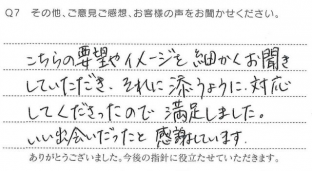 Q7 その他、ご意見ご感想、お客様の声をお聞かせください。
こちらの要望やイメージを細かくお聞き
していただき、それに添うように対応
してくださったので満足しました。
いい出会いだったと感謝しています。
ありがとうございました。今後の指針に役立たせていただきます。